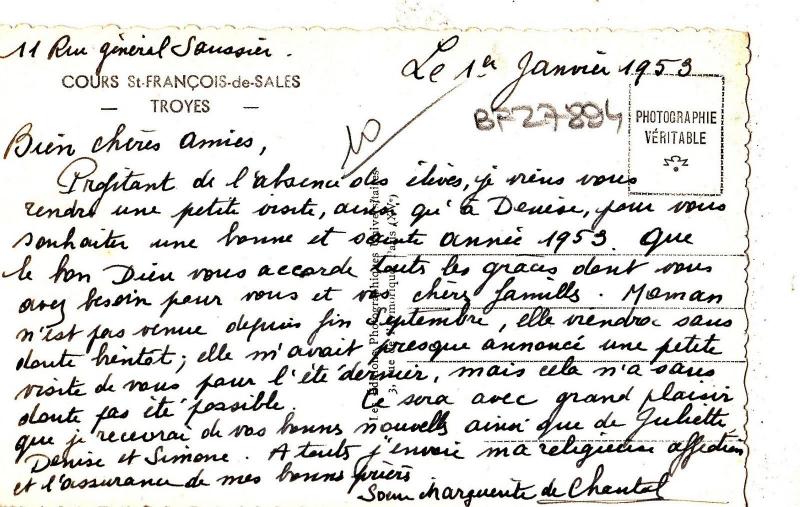 11 Rue général Saussier.
COURS St-FRANÇOIS-de-SALES
— TROYES —
Le 1er Janvier 1953
BF27884
PHOTOGRAPHIE
VÉRITABLE
10
Bien chères amies,
Profitant de l'absence des élèves, je viens vous
rendre une petite visite, ainsi qu'à Denise, pour vous
souhaiter une bonne et sainte année 1953. Que
le bon Dieu vous accorde touts les graces dont vous
avez besoin pour vous et vos chères familles. Maman
n'est pas venue depuis fin septembre, elle viendra sans
doute bientot; elle m'avait presque annoncé une petite
visite de vous pour l'été dernier, mais cela n'a sans
doute pas été possible. Ce sera avec grand plaisir
que je recevrai de vos bonnes nouvelles ainsi que de Juliette
Denise et Simone. A touts j'envoie ma religieuse affection
et l'assurance de mes bonnes prières
Soeur Marguerite de Chantal
Les Editions Photographiques Universitaires
3, rue Paris (XVe)